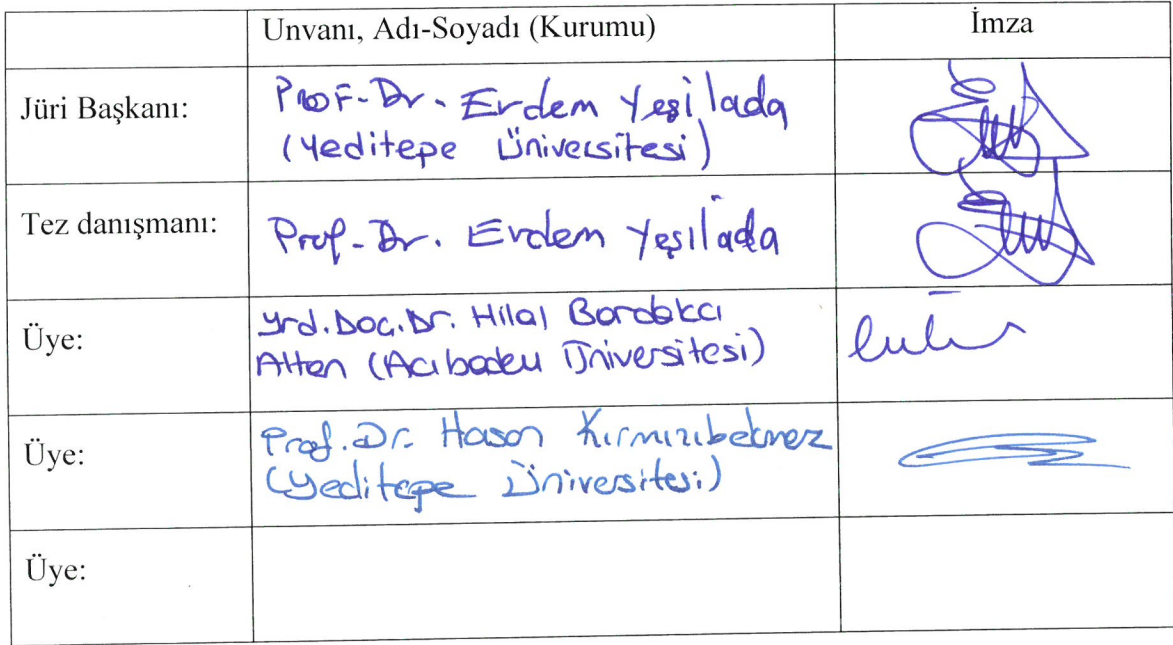 Unvanı, Adı-Soyadı (Kurumu) İmza
Jüri Başkanı: Prof. Dr. Erdem Yeşilada
(Yeditepe Üniversitesi)
Tez danışmanı: Prof. Dr. Erdem Yeşilada
Üye: Yrd. Doç. Dr. Hilal Bardakcı
Altan (Acıbadem Üniversitesi)
Üye: Prof. Dr. Hasan Kırmızıbekmez
(Yeditepe Üniversitesi)
Üye: